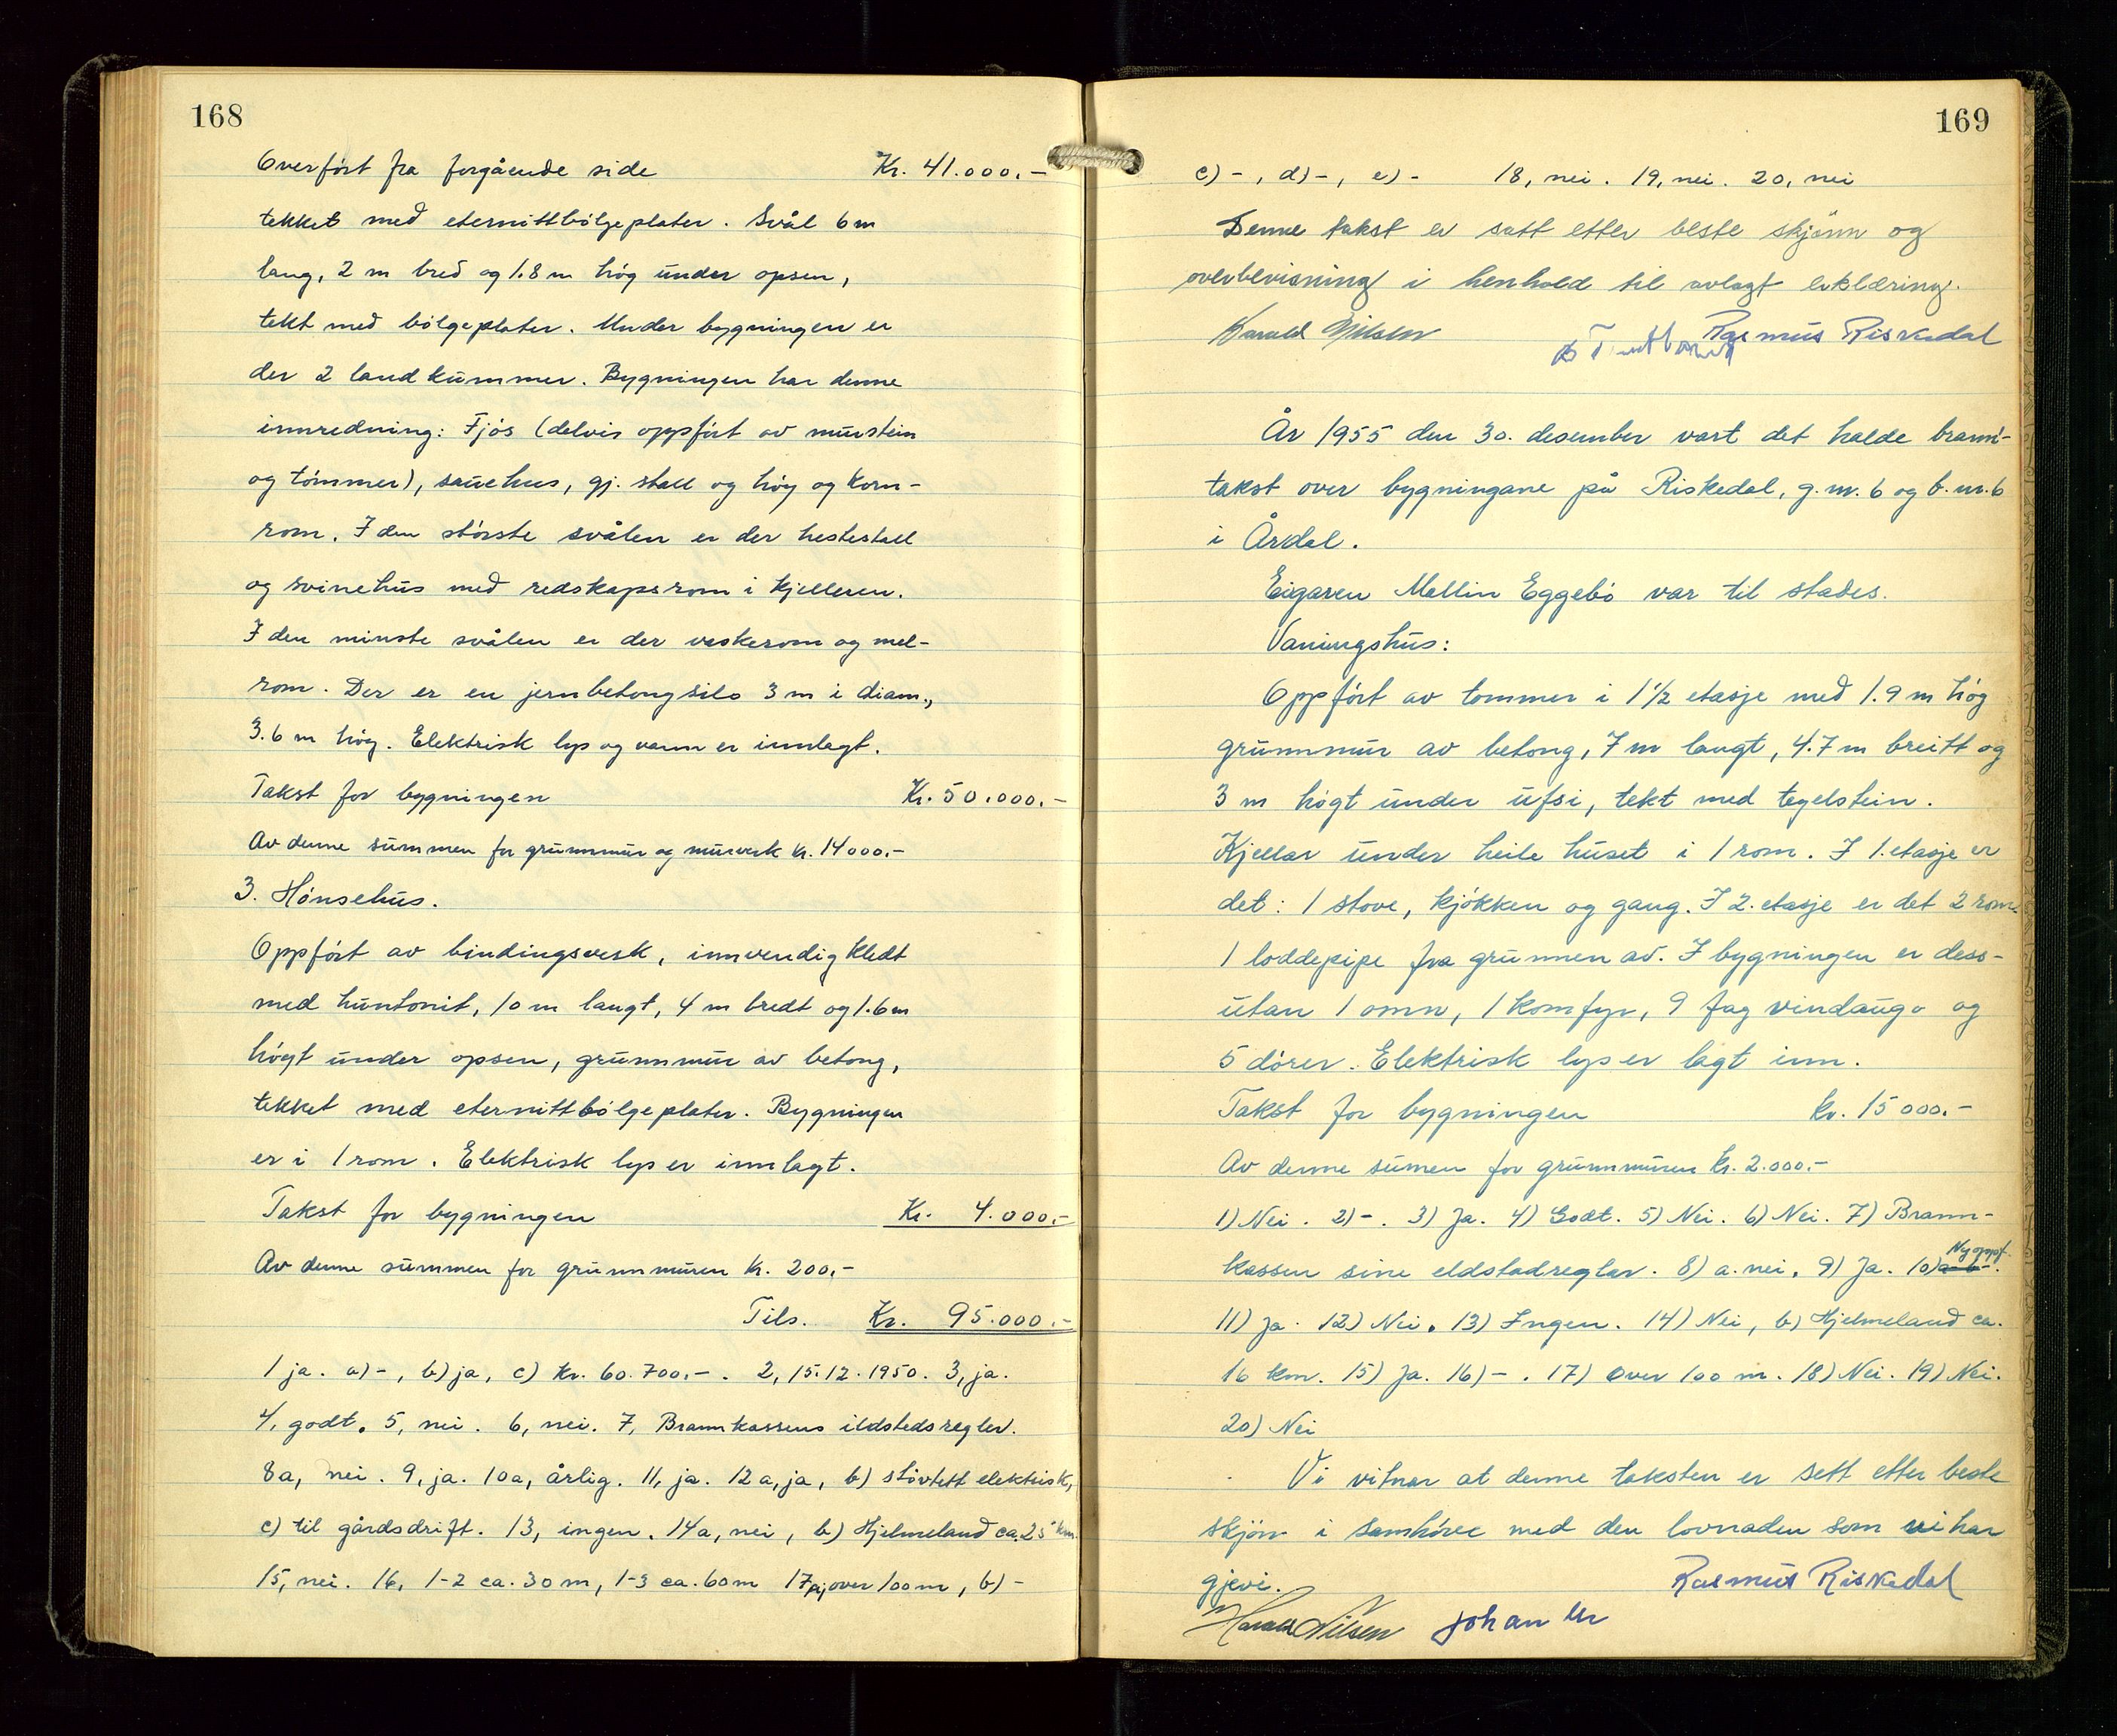 168
Overført fra forgående side Kr. 41.000,-
tekket med eternittbølgeplater. Svål 6 m
lang, 2 m bred og 1.8 m høg under opsen,
tekt med bølgeplater. Under bygningen er
der 2 landkummer. Bygningen har denne
innredning: Fjøs (delvis oppført av murstein
og tømmer), sauehus, gj. stall og høy og korn-
rom. I den største svålen er der hestestall
og svinehus med redskapsrom i kjelleren.
I den minste svålen er der vaskerom og mel-
rom. Der er en jernbetongsilo 3 m i diam.,
3.6 m høg. Elektrisk lys og vann er innlagt.
Takst for bygningen Kr. 50.000.-
Av denne summen for grunnmur og murverk kr. 14000.-
3. Hønsehus.
Oppført av bindingsverk, innvendig kledt
med huntonit, 10 m langt, 4 m bredt og 1.6 m
høgt under opsen, grunnmur av betong,
tekket med eternittbølgeplater. Bygningen
er i 1 rom. Elektrisk lys er innlagt.
Takst for bygningen Kr. 4.000.-
Av denne summen for grunnmuren kr. 200,-
Tils. Kr. 95.000.-
1 ja. a) -, b) ja, c) kr. 60.700,-. 2, 15.12.1950. 3, ja.
4, godt. 5, nei. 6, nei. 7, Brannkassens ildstedsregler.
8a, nei. 9, ja. 10a, årlig. 11, ja. 12 a, ja, b) støvtett elektrisk,
c) til gårdsdrift. 13, ingen. 14a, nei, b) Hjelmeland ca. 25 km.
15, nei. 16, 1-2 ca. 30 m, 1-3 ca. 60 m 17 a) over 100 m, b) -
169
c) -, d) -, e) - 18, nei. 19, nei. 20, nei
Denne takst er satt etter beste skjønn og
overbevisning i henhold til avlagt erklæring.
Harald Nilsen Rasmus Riskedal
År 1955 den 30. desember vart det halde brann-
takst over bygningane på Riskedal, g. nr. 6 og b. nr. 6
i Årdal.
Eigaren Mallin Eggebø var til stades.
Vaningshus:
Oppført av tømmer i 1 1/2 etasje med 1.9 m høg
grunnmur av betong, 7 m langt, 4.7 m breitt og
3 m høgt under ufsi, tekt med tegelstein.
Kjellar under heile huset i 1 rom. I 1. etasje er
det: 1 stove, kjøkken og gang. I 2. etasje er det 2 rom.
1 loddepipe fra grunnen av. I bygningen er dess-
utan 1 omn, 1 komfyr, 9 fag vindaugo og
5 dører. Elektrisk lys er lagt inn.
Takst for bygningen kr. 15000.-
Av denne sumen for grunnmuren kr. 2.000.-
1) Nei. 2) -. 3) Ja. 4) Godt. 5) Nei. 6) Nei. 7) Brann-
kassen sine eldstadreglar. 8) a. nei. 9) Ja. 10) Ny oppf.
11) Ja. 12) Nei. 13) Ingen. 14) Nei, b) Hjelmeland ca.
16 km. 15) Ja. 16) -. 17) Over 100 m. 18) Nei. 19) Nei.
20) Nei
Vi vitnar at denne taksten er sett etter beste
skjøn i samhøve med den lovnaden som vi har
gjevi. Rasmus Riskedal
Harald Nilsen Johan